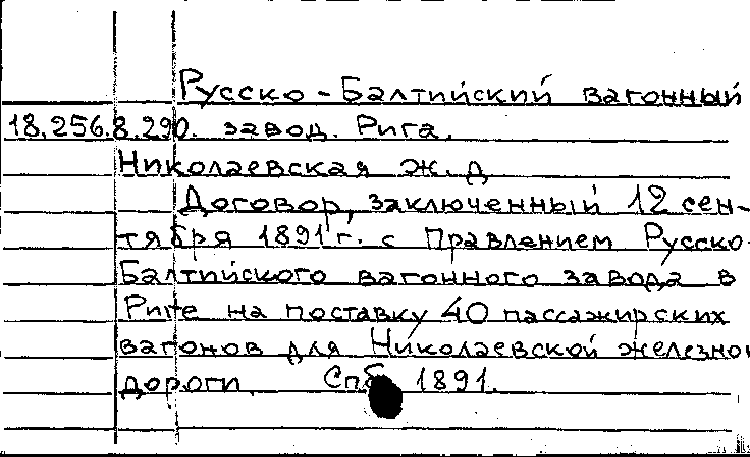 Русско-Балтийский вагонный
18.256.8.290. завод. Рига.
Николаевская ж.д
Договор, заключенный 12 сен-
тября 1891 г. с Правлением Русско-
Балтийского вагонного завода в
Риге на поставку 40 пассажирских
вагонов для Николаевской железно
дороги. Спб 1891.